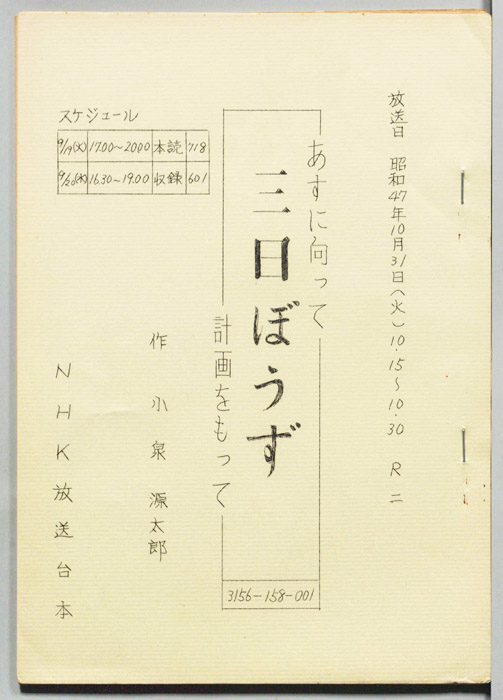 放送日 昭和47年10月31日(火)10.15〜10.30 R二
あすに向って
三日ぼうず
計画をもって
3156-158-001
作 小泉源太郎
スケジュール
9/19(火) 17.00〜20.00 本読 718
9/20(水) 16.30〜19.00 収録 601
NHK放送台本